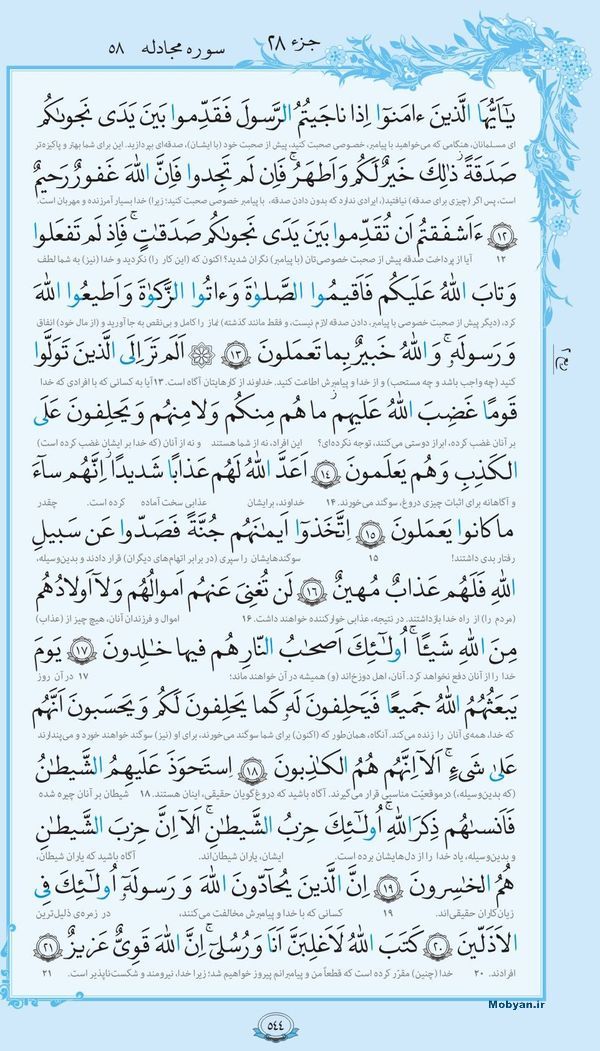 جزء ۲۸ سوره مجادله ۵۸
يٰٓاَيُّهَا الَّذينَ ءامَنوٓا اِذا ناجَيتُمُ الرَّسولَ فَقَدِّموا بَينَ يَدَى نَجوىٰكُم
ای مسلمانان، هنگامی که می‌خواهید با پیامبر، خصوصی صحبت کنید، پیش از صحبت خود (با ایشان)، صدقه‌ای بپردازید. این برای شما بهتر و پاکیزه‌تر
صَدَقَةً ذٰلِكَ خَيرٌ لَكُم وَاَطهَرُ فَاِن لَم تَجِدوا فَاِنَّ اللّٰهَ غَفورٌ رَحيمٌ
است، پس اگر (چیزی برای صدقه) نیافتید، ایرادی ندارد که بدون دادن صدقه، با پیامبر خصوصی صحبت کنید؛ زیرا) خدا بسیار آمرزنده و مهربان است.
۱۲ ءَاَشفَقتُم اَن تُقَدِّموا بَينَ يَدَى نَجوىٰكُم صَدَقٰتٍ فَاِذ لَم تَفعَلوا
۱۲ آیا از پرداخت صدقه پیش از صحبت خصوصی‌تان (با پیامبر) نگران شدید؟ اکنون که (این کار را) نکردید و خدا (نیز) به شما لطف
وَتابَ اللّٰهُ عَلَيكُم فَاَقيمُوا الصَّلوٰةَ وَءاتُوا الزَّكوٰةَ وَاَطيعُوا اللّٰهَ
کرد، (دیگر پیش از صحبت خصوصی با پیامبر، دادن صدقه لازم نیست، و فقط مانند گذشته) نماز را کامل و بی‌نقص به جا آورید و (از مال خود) انفاق
وَرَسولَهُ وَاللّٰهُ خَبيرٌ بِما تَعمَلونَ ۱۳ اَلَم تَرَ اِلَى الَّذينَ تَوَلَّوا
کنید (چه واجب باشد و چه مستحب) و از خدا و پیامبرش اطاعت کنید. خداوند از کارهایتان آگاه است. ۱۳ آیا به کسانی که با افرادی که خدا
قَومًا غَضِبَ اللّٰهُ عَلَيهِم ما هُم مِنكُم وَلا مِنهُم وَيَحلِفونَ عَلَى
بر آنان غضب کرده، ابراز دوستی می‌کنند، توجه نکرده‌ای؟ این افراد، نه از شما هستند و نه از آنان (که خدا بر ایشان غضب کرده است)
الكَذِبِ وَهُم يَعلَمونَ ۱۴ اَعَدَّ اللّٰهُ لَهُم عَذابًا شَديدًا اِنَّهُم سآءَ
و آگاهانه برای اثبات چیزی دروغ، سوگند می‌خورند. ۱۴ خداوند، برایشان عذابی سخت آماده کرده است. چقدر
ما كانوا يَعمَلونَ ۱۵ اِتَّخَذوٓا اَيمٰنَهُم جُنَّةً فَصَدّوا عَن سَبيلِ
رفتار بدی داشتند! ۱۵ سوگندهایشان را سپری (در برابر اتهام‌های دیگران) قرار دادند و بدین‌وسیله،
اللّٰهِ فَلَهُم عَذابٌ مُهينٌ ۱۶ لَن تُغنِىَ عَنهُم اَموالُهُم وَلآ اَولادُهُم
(مردم را) از راه خدا بازداشتند. در نتیجه، عذابی خوارکننده خواهند داشت. ۱۶ اموال و فرزندان آنان، هیچ چیز از (عذاب)
مِنَ اللّٰهِ شَيئًا اُولٰٓئِكَ اَصحٰبُ النّارِ هُم فيها خٰلِدونَ ۱۷ يَومَ
خدا را از آنان دفع نخواهد کرد. آنان، اهل دوزخ‌اند (و) همیشه در آن خواهند ماند؛ ۱۷ در آن روز
يَبعَثُهُمُ اللّٰهُ جَميعًا فَيَحلِفونَ لَهُ كَما يَحلِفونَ لَكُم وَيَحسَبونَ اَنَّهُم
که خدا، همه‌ی آنان را زنده می‌کند. آنگاه، همان‌طور که (اکنون) برای شما سوگند می‌خورند، برای او (نیز) سوگند خواهند خورد و می‌پندارند
عَلىٰ شَىءٍ اَلآ اِنَّهُم هُمُ الكٰذِبونَ ۱۸ اِستَحوَذَ عَلَيهِمُ الشَّيطٰنُ
(که بدین‌وسیله،) در موقعیّت مناسبی قرار می‌گیرند. آگاه باشید که دروغ‌گویان حقیقی، اینان هستند. ۱۸ شیطان بر آنان چیره شده
فَاَنسٰىهُم ذِكرَ اللّٰهِ اُولٰٓئِكَ حِزبُ الشَّيطٰنِ اَلآ اِنَّ حِزبَ الشَّيطٰنِ
و بدین‌وسیله، یاد خدا را از دل‌هایشان برده است. ایشان، یاران شیطان‌اند. آگاه باشید که یاران شیطان،
هُمُ الخٰسِرونَ ۱۹ اِنَّ الَّذينَ يُحآدّونَ اللّٰهَ وَرَسولَهُ اُولٰٓئِكَ فِى
زیان‌کاران حقیقی‌اند. ۱۹ کسانی که با خدا و پیامبرش مخالفت می‌کنند، در زمره‌ی ذلیل‌ترین
الاَذَلّينَ ۲۰ كَتَبَ اللّٰهُ لَاَغلِبَنَّ اَنَا وَرُسُلى اِنَّ اللّٰهَ قَوِىٌّ عَزيزٌ ۲۱
افرادند. ۲۰ خدا (چنین) مقرّر کرده است که قطعاً من و پیامبرانم پیروز خواهیم شد؛ زیرا خدا، نیرومند و شکست‌ناپذیر است. ۲۱
Mobyan.ir
۵۴۴